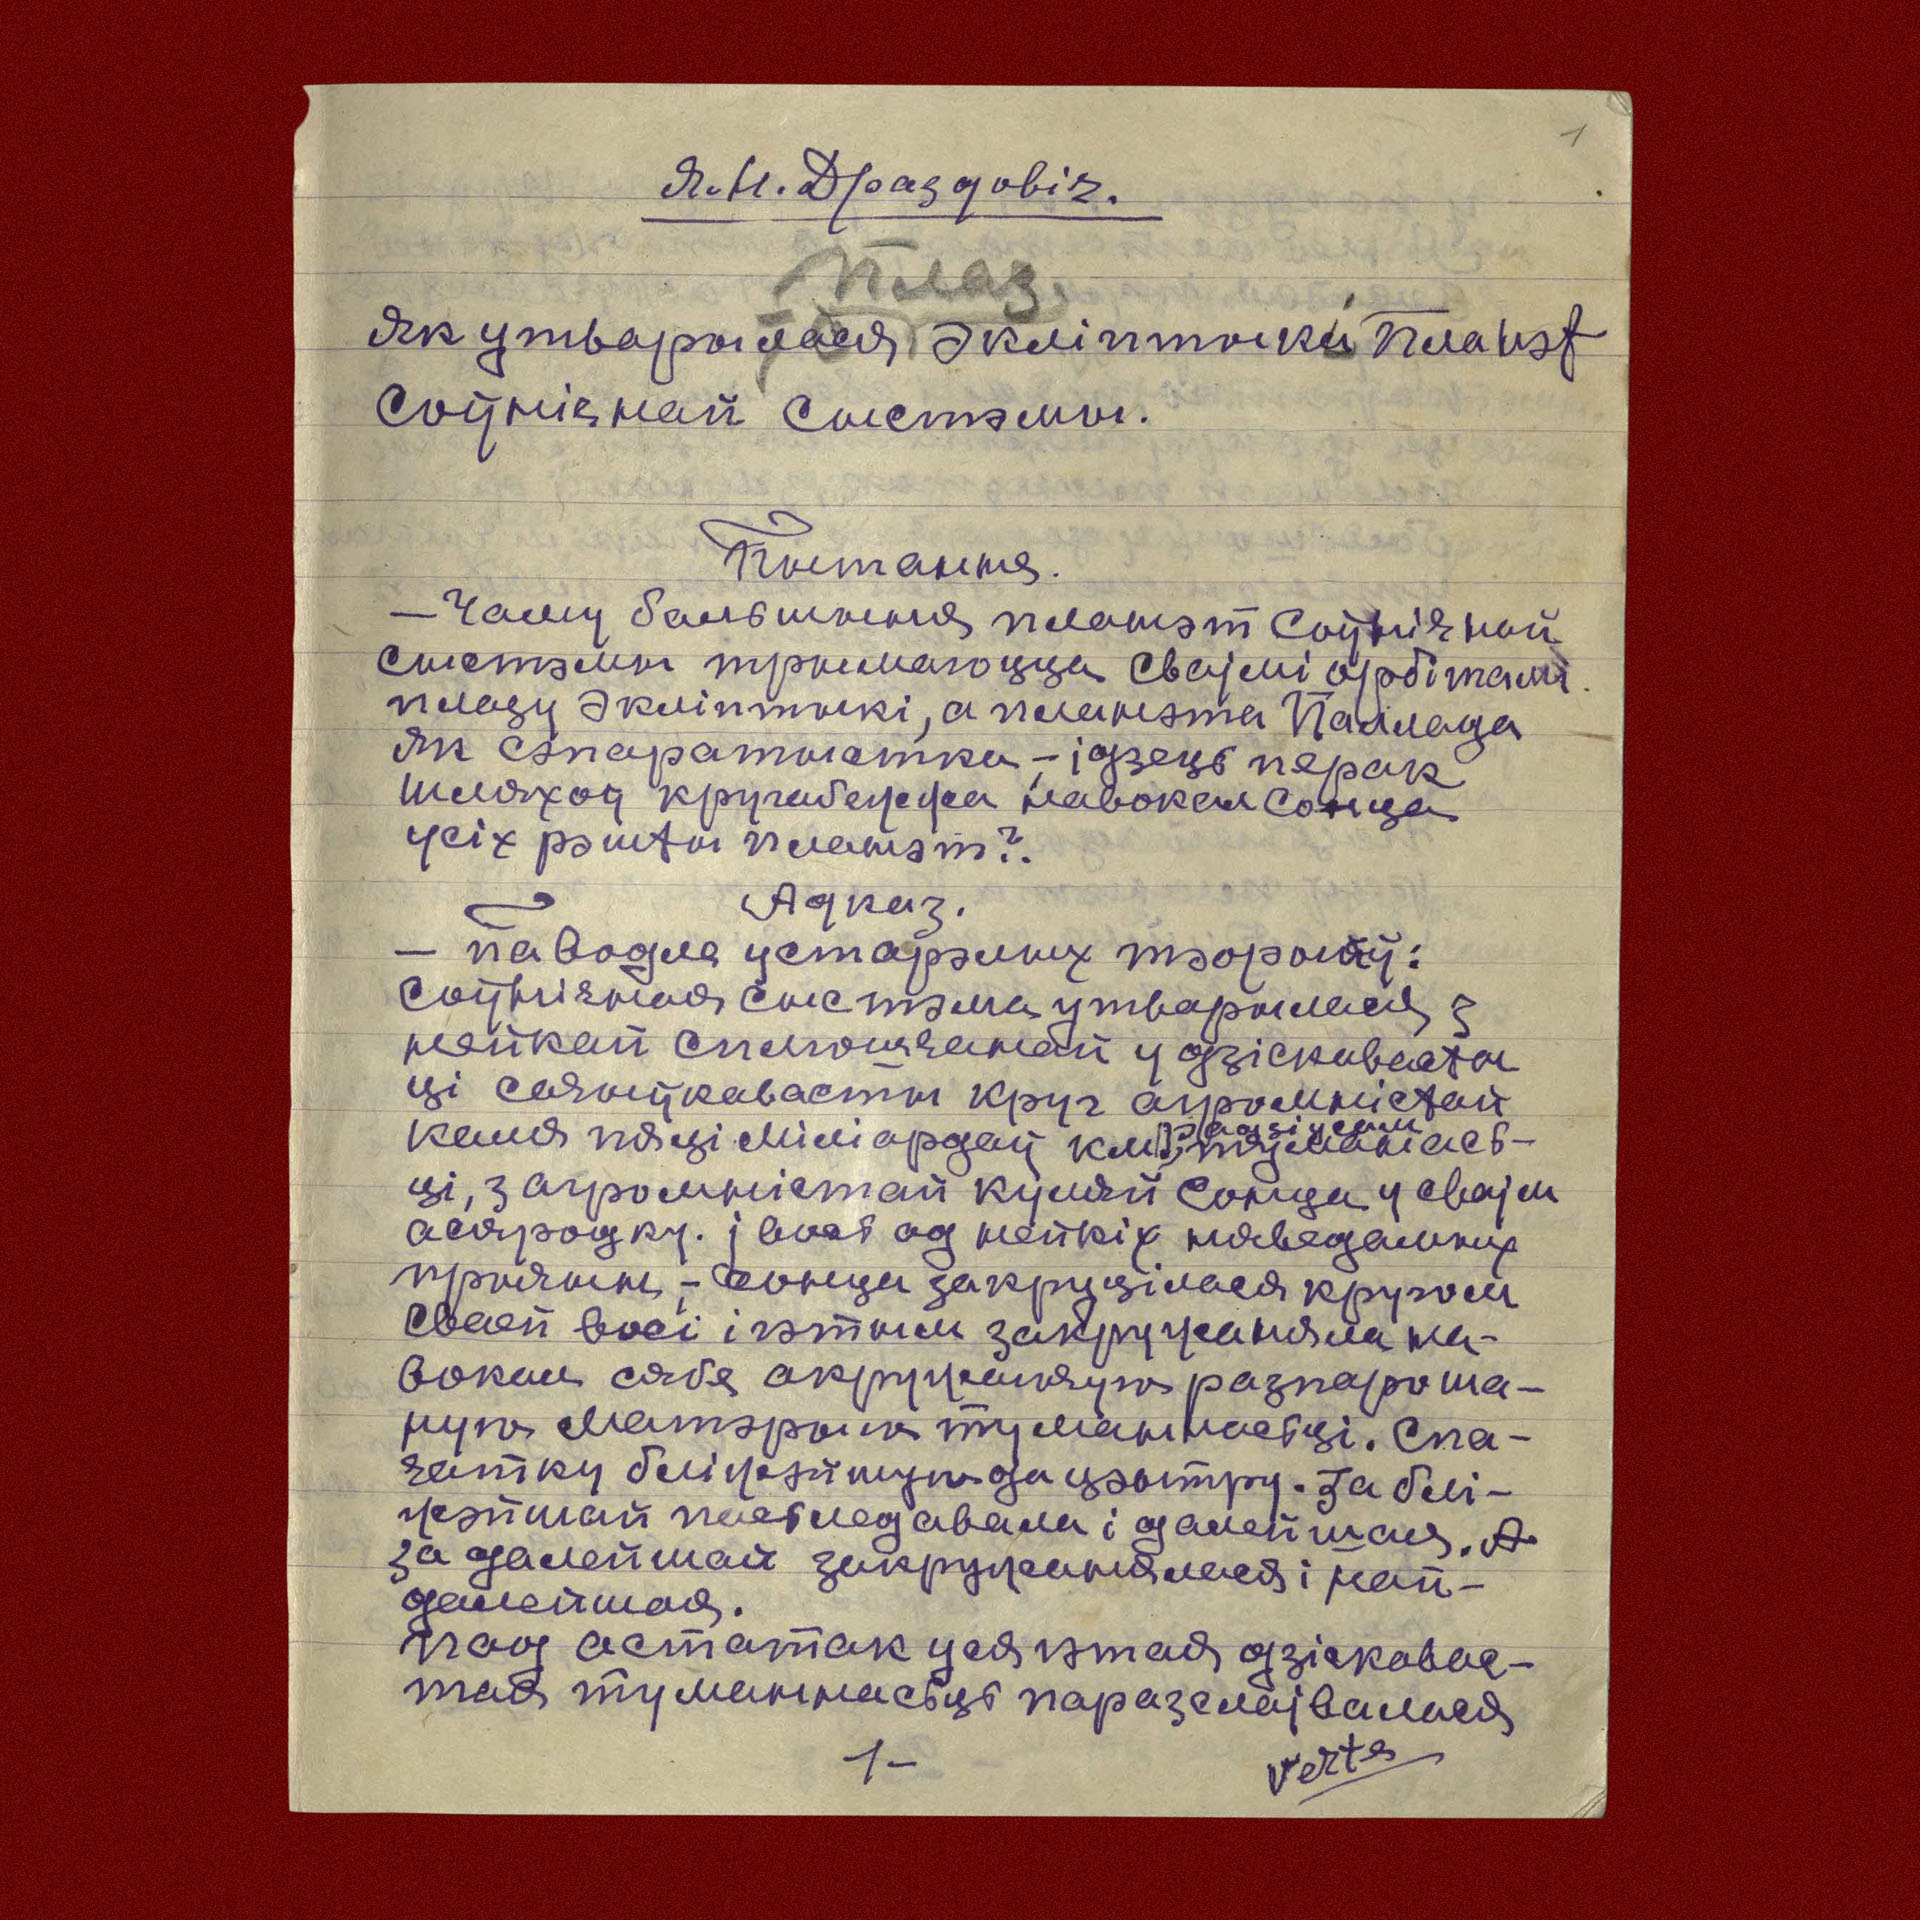 1
Я.Н. Драздовіч.
Плаз
Як утварылася Экліптыкі Планэт
Соўнічнай Сыстэмы.
Пытання.
— Чаму балышыння планэт Соўнічнай
сыстэмы трымаюцца сваімі орбітамі
плазу Экліптыкі, а планэта Паллада
як сэпаратыстка – ідзець перак
шляхоў кругабежжа навокал Сонца
усіх рэшты планэт?.
Адказ.
— Паводля устарэлых тэорыяў:
Соўнічная сыстэма утварылася з
нейкай сплюшчанай у дзіскаваты
ці сачыўкавасты круг агромністай
каля пяці міліардаў км радзіусам туманнась-
ці, з агромністай куляй Сонца у сваім
асяродку. і вось ад нейкіх няведамых
прычын, – Сонца закруцілася кругом
сваей восі і гэтым закружаняла на-
вокал сябе акружаючую разпароша-
ную матэрыю туманнасьці. Спа-
чатку бліжэйшую да цэнтру. За блі-
жэйшай пасьледавала і далейшая. А
за далейшай закружанялася і най-
далейшая.
Пад астатак уся гэтая дзіскавас-
тая туманнасьць паразслаівалася
-1-
verte